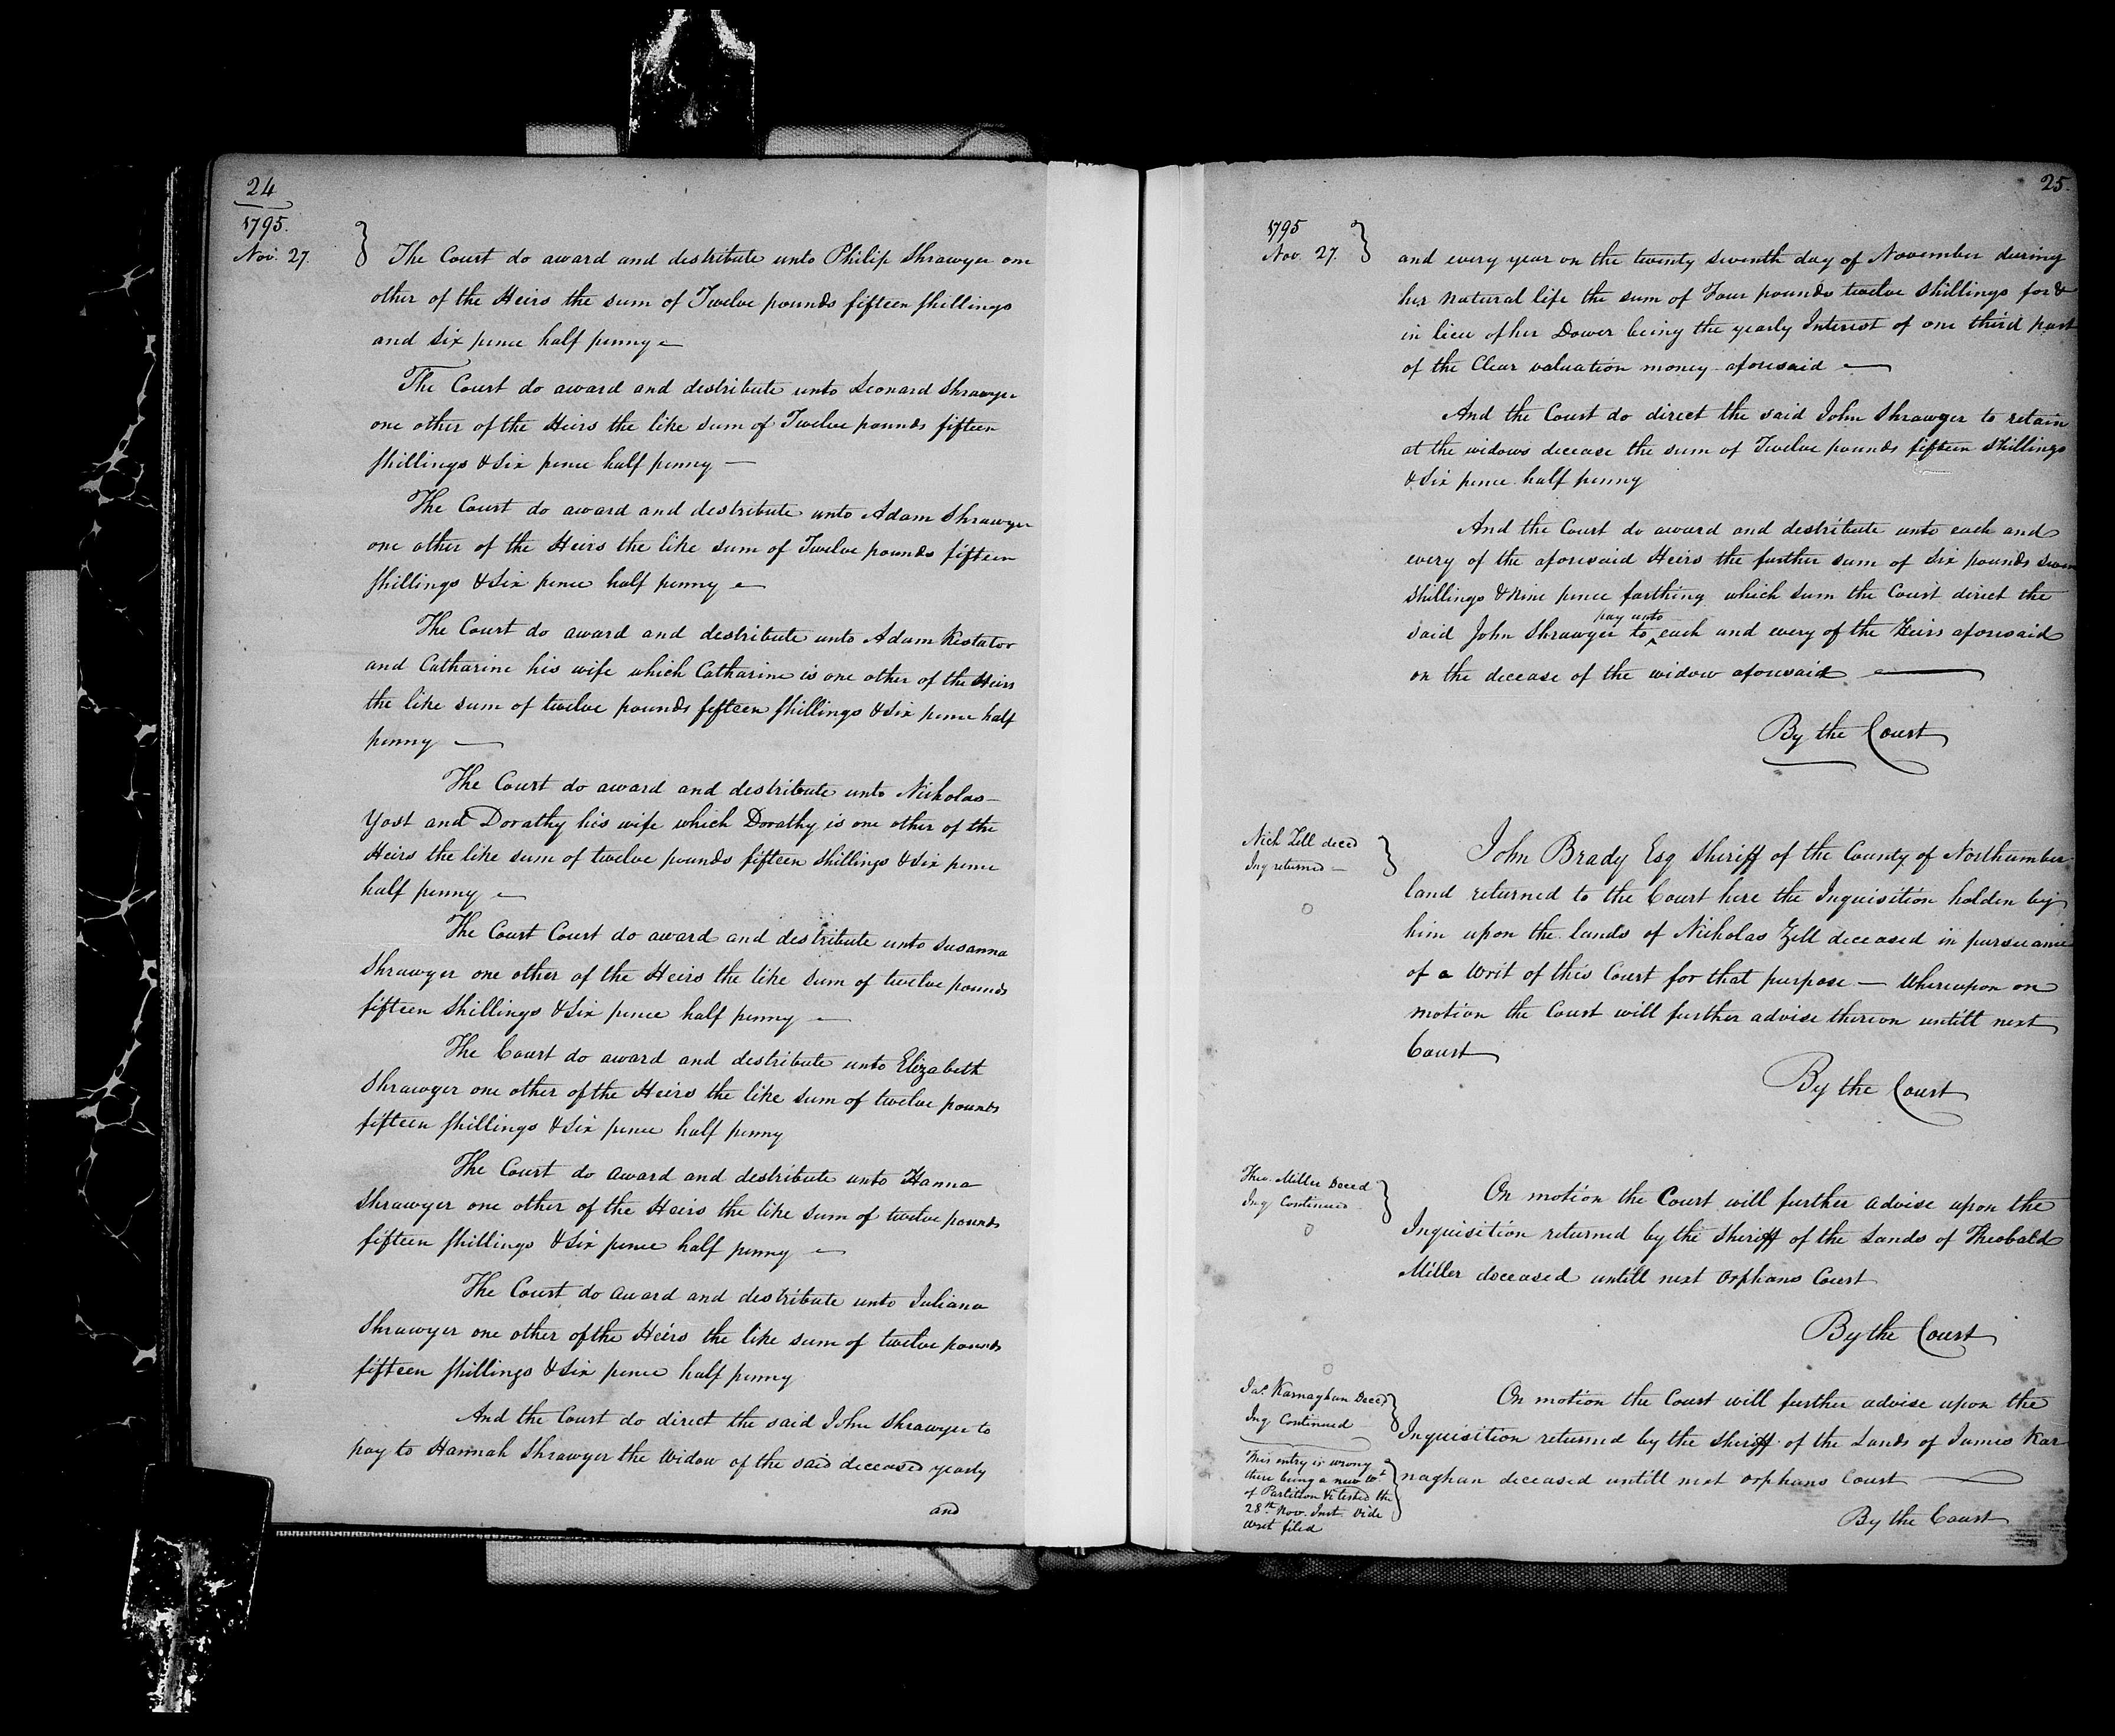 24
1795.
Nov. 27.
The Court do award and destribute unto Philip Shrawyer one
other of the Heirs the sum of Twelve pounds fifteen shillings
and six pence half penny
The Court do award and destribute unto Leonard Shrawyer
one other of the Heirs the like sum of Twelve pounds fifteen
shillings & Six pence half penny —
The Court do award and destribute unto Adam Shrawyer
one other of the Heirs the like sum of Twelve pounds fifteen
shillings & Six pence half penny
The Court do award and destribute unto Adam Kestator
and Catharine his wife which Catharine is one other of the Heirs
the like sum of twelve pounds fifteen shillings & Six pence half
penny —
The Court do award and destribute unto Nicholas
Yost and Dorathy his wife which Dorathy is one other of the
Heirs the like sum of twelve pounds fifteen shillings & Six pence
half penny
The Court Court do award and destribute unto Susanna
Shrawyer one other of the Heirs the like sum of twelve pounds
fifteen shillings & Six pence half penny —
The Court do award and destribute unto Elizabeth
Shrawyer one other of the Heirs the like sum of twelve pounds
fifteen shillings & Six pence half penny
The Court do award and destribute unto Hanna
Shrawyer one other of the Heirs the like sum of twelve pounds
fifteen shillings & Six pence half penny —
The Court do award and destribute unto Juliana
Shrawyer one other of the Heirs the like sum of twelve pounds
fifteen shillings & Six pence half penny
And the Court do direct the said John Shrawyer to
pay to Hannah Shrawyer the Widow of the said deceased yearly
and
25.
1795
Nov. 27.
and every year on the twenty seventh day of November during
her natural life the sum of Four pounds twelve shillings for &
in lieu of her Dower being the yearly Interest of one third part
of the Clear valuation money aforesaid —
And the Court do direct the said John Shrawyer to retain
at the widows decease the sum of Twelve pounds fifteen shillings
& Six pence half penny
And the Court do award and destribute unto each and
every of the aforesaid Heirs the further sum of Six pounds seven
shillings & nine pence farthing which sum the Court direct the
pay unto
said John Shrawyer to ^ each and every of the Heirs aforesaid
on the decease of the widow aforesaid —
By the Court
Nich Zell deced
Inq returned —
John Brady Esq Sheriff of the County of Northumber-
land returned to the Court here the Inquisition holden by
him upon the lands of Nicholas Zell deceased in pursuance
of a Writ of this Court for that purpose — Whereupon on
motion the Court will further advise thereon untill next
Court
By the Court
Theo. Miller Deced
Inq Continued
On motion the Court will further advise upon the
Inquisition returned by the Sheriff of the Lands of Theobald
Miller deceased untill next Orphans Court
By the Court
Jas. Karnaghan Deced
Inq Continued
This entry is wrong
there being a new Wt
of Partition & tested the
28th Nov. Inst. Vide
Writ filed
On motion the Court will further advise upon the
Inquisition returned by the Sheriff of the Lands of James Kar
naghan deceased untill next Orphans Court —
By the Court